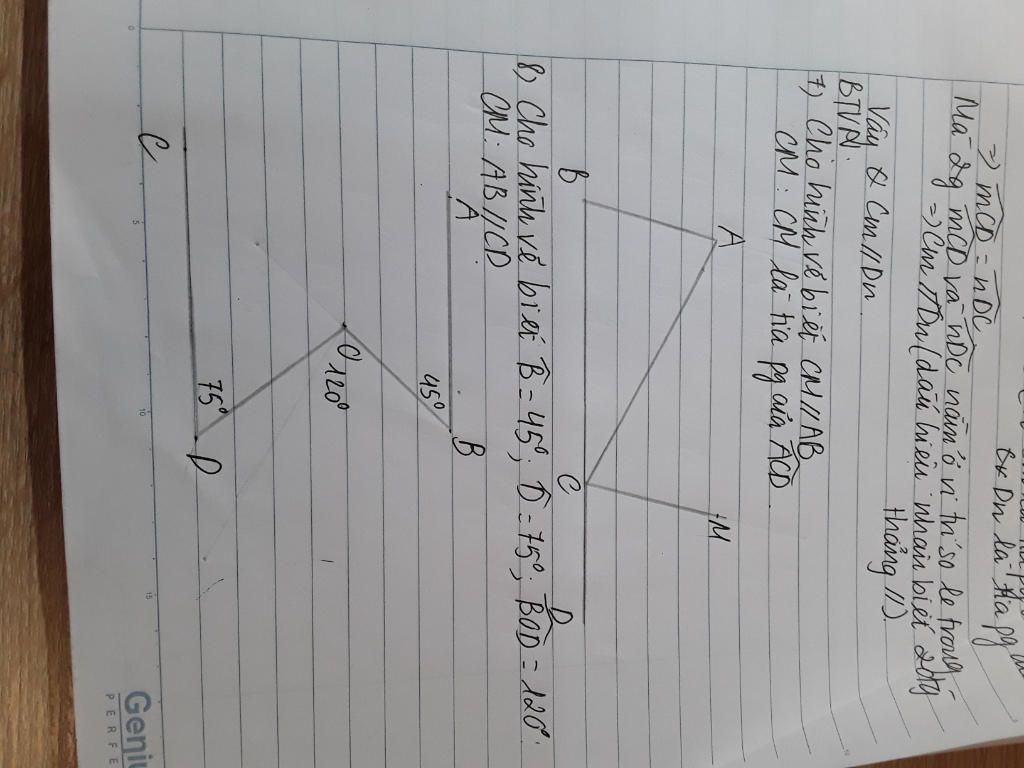 Bx Dn là tia pg
=> mCD = nDC
Mà 2g mCD và nDC nằm ở vị trí so le trong
=> Cm // Dn (dấu hiệu nhận biết 2 đg
thẳng //)
Vậy Cm // Dn
BTVN:
7) Cho hình vẽ biết CM // AB
CM: CM là tia pg của ACD
A
M
B
C
D
8) Cho hình vẽ biết B = 45°; D = 75°; BOD = 120°.
CM: AB // CD
A
B
45°
O
120°
75°
C
D
0
5
10
15
PERFE